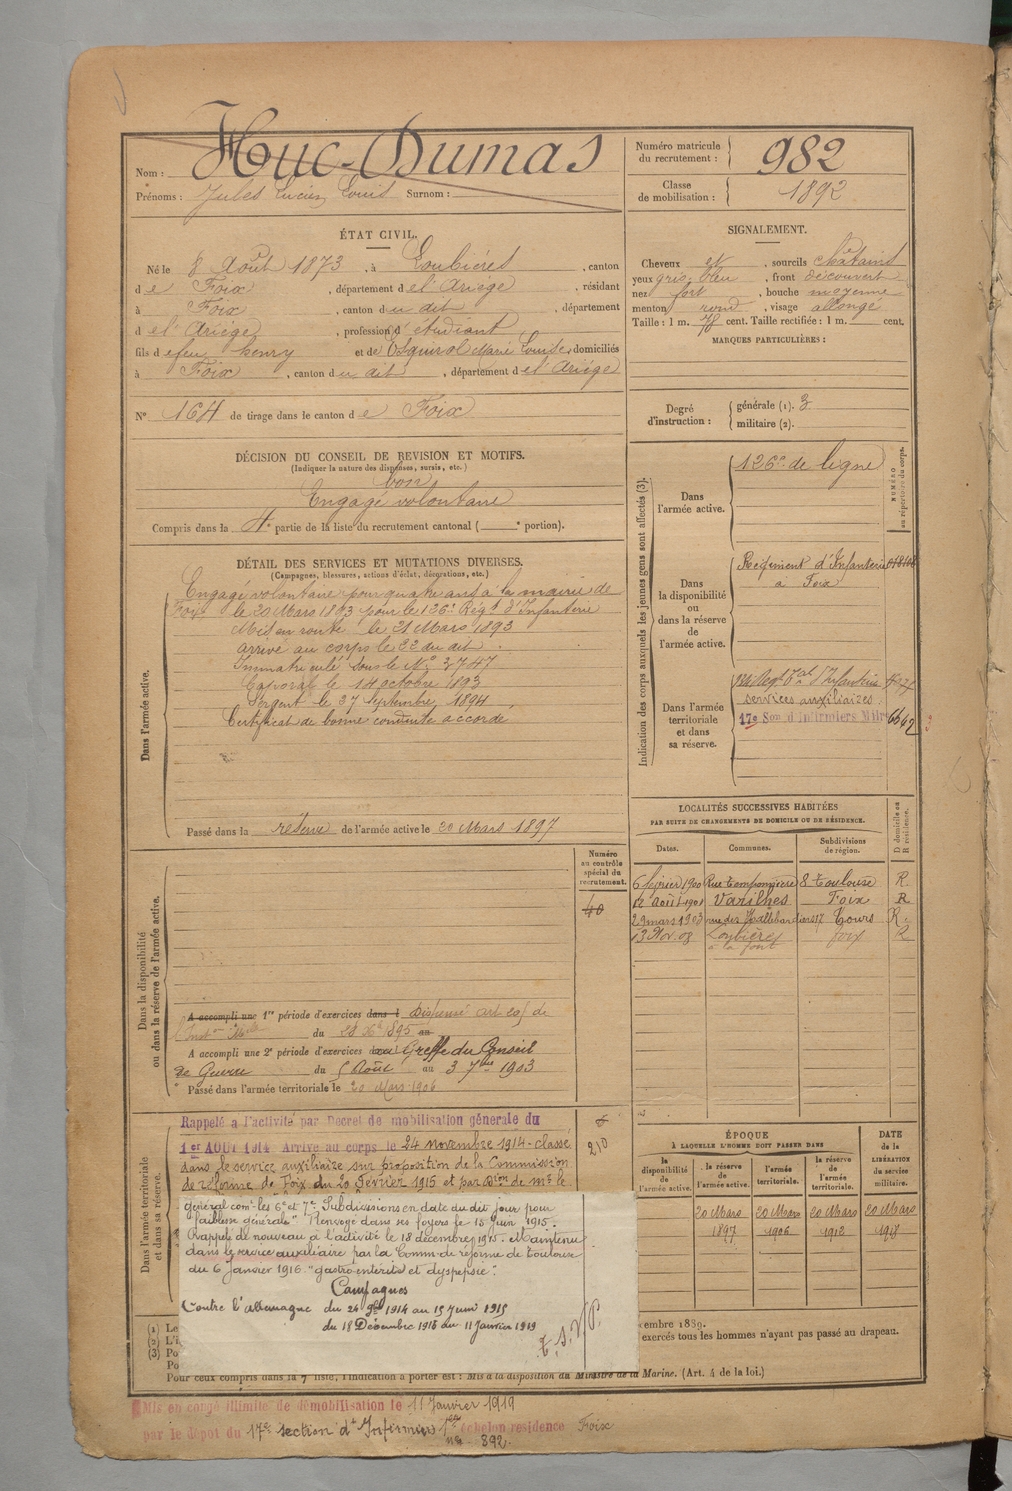 Nom : Huc-Dumas
Prénoms : Jules Lucien Louis Surnom :
Numéro matricule du recrutement : 982
Classe de mobilisation : 1892
ÉTAT CIVIL.
Né le 8 Août 1873, à Loubières, canton
de Foix, département de l'Ariège, résidant
à Foix, canton du dit, département
de l'Ariège, profession d'étudiant
fils de feu henry et de Esquirol Marie Louise, domiciliés
à Foix, canton du dit, département de l'Ariège
N° 164 de tirage dans le canton de Foix
SIGNALEMENT.
Cheveux et, sourcils châtains
yeux gris bleu, front découvert
nez fort, bouche moyenne
menton rond, visage allongé
Taille : 1 m. 78 cent. Taille rectifiée : 1 m. cent.
MARQUES PARTICULIÈRES :
Degré d'instruction : générale (1). 3
militaire (2).
DÉCISION DU CONSEIL DE REVISION ET MOTIFS.
(Indiquer la nature des dispenses, sursis, etc.)
bon
Engagé volontaire
Compris dans la 4e partie de la liste du recrutement cantonal ( e portion).
DÉTAIL DES SERVICES ET MUTATIONS DIVERSES.
(Campagnes, blessures, actions d'éclat, décorations, etc.)
Dans l'armée active.
Engagé volontaire pour quatre ans à la mairie de
Foix le 20 Mars 1893 pour le 126e Régt d'Infanterie
Mis en route le 21 Mars 1893
arrivé au corps le 22 du dit.
Immatriculé sous le No 3747
Caporal le 14 octobre 1893
Sergent le 27 septembre 1894
Certificat de bonne conduite accordé
Passé dans la réserve de l'armée active le 20 Mars 1897
Indication des corps auxquels les jeunes gens sont affectés (3).
NUMÉRO au répertoire du corps.
Dans l'armée active.
126e de ligne
Dans la disponibilité ou dans la réserve de l'armée active.
Régiment d'Infanterie
à Foix
Dans l'armée territoriale et dans sa réserve.
services auxiliaires
17e Son d'Infirmiers Milres 6642
LOCALITÉS SUCCESSIVES HABITÉES
PAR SUITE DE CHANGEMENTS DE DOMICILE OU DE RÉSIDENCE.
D domicile ou R résidence.
Dates. Communes. Subdivisions de région.
6 février 1900 Rue Tomponnière 8 Toulouse R.
12 août 1901 Varilhes Foix R
29 mars 1903 rue des Hallebardiers 17 Tours R.
13 Nov. 08 Loubières Foix R
à la font
Numéro au contrôle spécial du recrutement.
40
Dans la disponibilité ou dans la réserve de l'armée active.
A accompli une 1re période d'exercices dans l Dispensé art
du 1895 au
A accompli une 2e période d'exercices Greffe du Conseil
de Guerre du 5 Août au 3 7bre 1903
Passé dans l'armée territoriale le 20 Mars 1906
Dans l'armée territoriale et dans sa réserve.
Rappelé à l'activité par Decret de mobilisation génerale du
1er AOUT 1914 Arrivé au corps le 24 novembre 1914 - classé
dans le service auxiliaire sur proposition de la Commission
de réforme de Foix du 20 février 1915 et par Dion de Mr le
général comt les 6e et 7e Subdivisions en date du dit jour pour
"faiblesse générale" Renvoyé dans ses foyers le 15 juin 1915.
Rappelé de nouveau à l'activité le 18 décembre 1915. Maintenu
dans le service auxiliaire par la Comm. de réforme de Toulouse
du 6 Janvier 1916 "gastro-entérite et dyspepsie".
Campagnes
Contre l'allemagne du 24 9bre 1914 au 15 Juin 1915
du 18 Décembre 1915 au 11 Janvier 1919
T.S.V.P.
210
ÉPOQUE
À LAQUELLE L'HOMME DOIT PASSER DANS
DATE de la LIBÉRATION du service militaire.
la disponibilité de l'armée active. la réserve de l'armée active. l'armée territoriale. la réserve de l'armée territoriale.
20 Mars 20 Mars 20 Mars 20 Mars
1897 1906 1912 1918
(1) Le
(2) L'i
(3) Po
Po
cembre 1889.
exercés tous les hommes n'ayant pas passé au drapeau.
Pour ceux compris dans la 7e liste, l'indication à porter est : Mis à la disposition du Ministre de la Marine. (Art. 4 de la loi.)
Mis en congé illimité de démobilisation le 11 Janvier 1919
par le dépôt du 17e section d'Infirmiers 1er échelon résidence Foix
no 892.